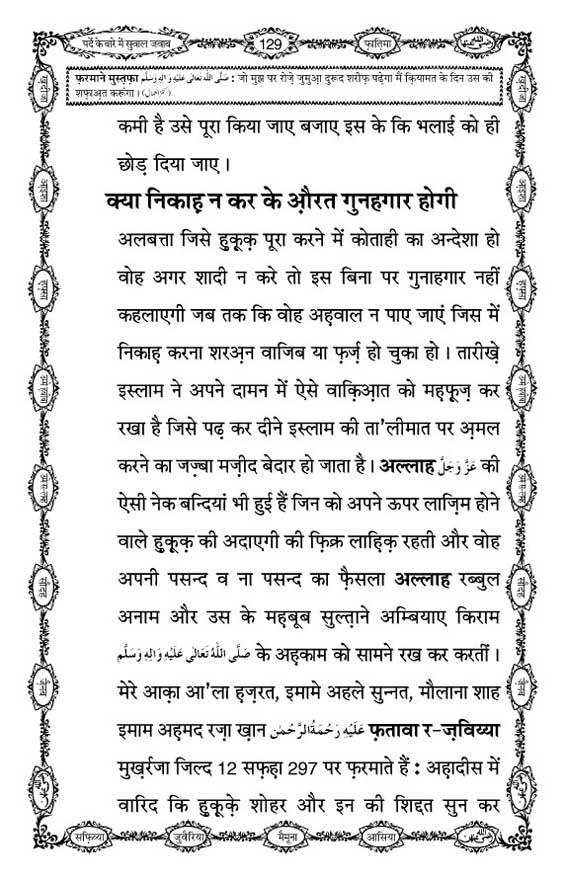 पर्दे के बारे में सुवाल जवाब
129
फ़ातिमा
फ़रमाने मुस्तफ़ा صَلَّى اللّٰهُ تَعَالٰى عَلَيْهِ وَاٰلِهٖ وَسَلَّم : जो मुझ पर रोज़े जुमुआ़ दुरूद शरीफ़ पढ़ेगा मैं क़ियामत के दिन उस की
शफ़ाअ़त करूंगा।
कमी है उसे पूरा किया जाए बजाए इस के कि भलाई को ही
छोड़ दिया जाए।
क्या निकाह़ न कर के औ़रत गुनहगार होगी
अलबत्ता जिसे हुक़ूक़ पूरा करने में कोताही का अन्देशा हो
वोह अगर शादी न करे तो इस बिना पर गुनाहगार नहीं
कहलाएगी जब तक कि वोह अह़वाल न पाए जाएं जिस में
निकाह़ करना शरअ़न वाजिब या फ़र्ज़ हो चुका हो। तारीखे़
इस्लाम ने अपने दामन में ऐसे वाक़िआ़त को मह़फ़ूज़ कर
रखा है जिसे पढ़ कर दीने इस्लाम की ता'लीमात पर अ़मल
करने का जज़्बा मज़ीद बेदार हो जाता है। अल्लाह عَزَّ وَجَلَّ की
ऐसी नेक बन्दियां भी हुई हैं जिन को अपने ऊपर लाज़िम होने
वाले हुक़ूक़ की अदाएगी की फ़िक्र लाह़िक़ रहती और वोह
अपनी पसन्द व ना पसन्द का फै़सला अल्लाह रब्बुल
अनाम और उस के मह़बूब सुल्त़ाने अम्बियाए किराम
صَلَّى اللّٰهُ تَعَالٰى عَلَيْهِ وَاٰلِهٖ وَسَلَّم के अह़काम को सामने रख कर करतीं।
मेरे आक़ा आ'ला ह़ज़रत, इमामे अहले सुन्नत, मौलाना शाह
इमाम अह़मद रज़ा ख़ान عَلَيْهِ رَحْمَةُ الرَّحْمٰن फ़तावा र-ज़विय्या
मुख़र्रजा जिल्द 12 सफ़ह़ा 297 पर फ़रमाते हैं : अह़ादीस में
वारिद कि हुक़ूक़े शोहर और इन की शिद्दत सुन कर
सफ़िय्या
जुवैरिया
मैमूना
आसिया